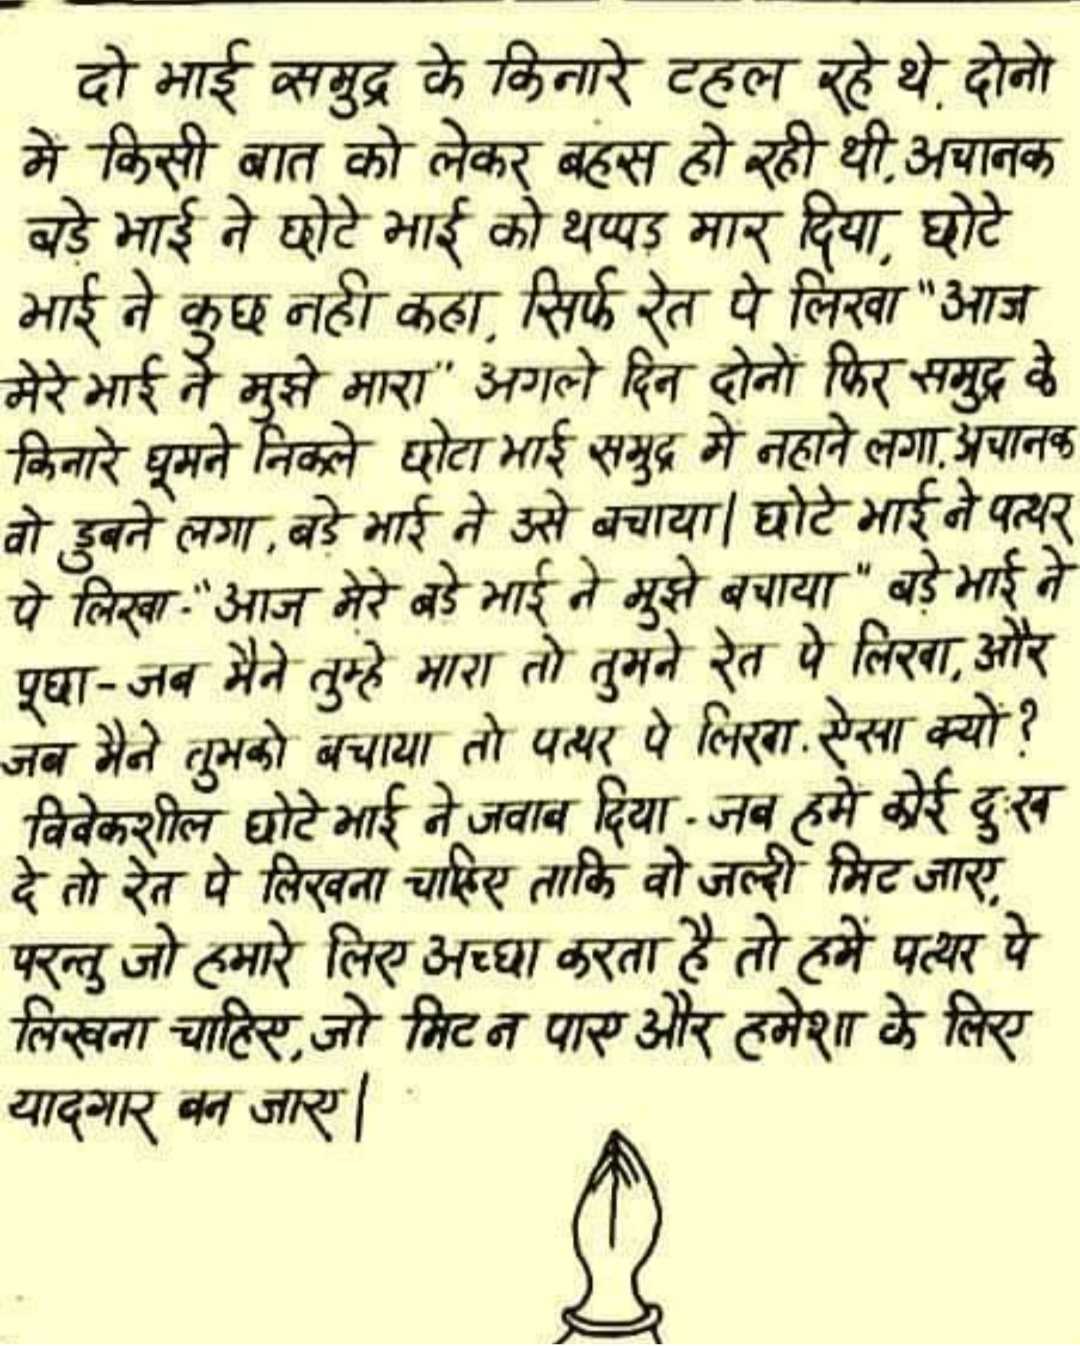 दो भाई समुद्र के किनारे टहल रहे थे. दोनो
में किसी बात को लेकर बहस हो रही थी. अचानक
बडे़ भाई ने छोटे भाई को थप्पड़ मार दिया, छोटे
भाई ने कुछ नही कहा, सिर्फ रेत पे लिखा "आज
मेरे भाई ने मुझे मारा" अगले दिन दोनों फिर समुद्र के
किनारे घूमने निकले छोटा भाई समुद्र में नहाने लगा. अचानक
वो डुबने लगा, बडे़ भाई ने उसे बचाया| छोटे भाई ने पत्थर
पे लिखा-"आज मेरे बडे़ भाई ने मुझे बचाया" बडे़ भाई ने
पूछा-जब मैने तुम्हे मारा तो तुमने रेत पे लिखा, और
जब मैने तुमको बचाया तो पत्थर पे लिखा. ऐसा क्यों?
विवेकशील छोटे भाई ने जवाब दिया - जब हमे कोई दुःख
दे तो रेत पे लिखना चाहिए ताकि वो जल्दी मिट जाए,
परन्तु जो हमारे लिए अच्छा करता है तो हमें पत्थर पे
लिखना चाहिए, जो मिट न पाए और हमेशा के लिए
यादगार बन जाए|